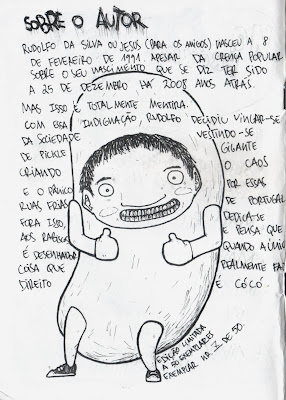 SOBRE O AUTOR
RUDOLFO DA SILVA OU JESUS (PARA OS AMIGOS) NASCEU A 8
DE FEVEREIRO DE 1991. APESAR DA CRENÇA POPULAR
SOBRE O SEU NASCIMENTO QUE SE DIZ TER SIDO
A 25 DE DEZEMBRO HÁ 2008 ANOS ATRÁS.
MAS ISSO É TOTALMENTE MENTIRA.
COM ESSA INDIGNAÇÃO, RUDOLFO DECIDIU VINGAR-SE
DA SOCIEDADE VESTINDO-SE
DE PICKLE GIGANTE
CRIANDO O CAOS
E O PÂNICO POR ESSAS
RUAS FRIAS DE PORTUGAL
FORA ISSO, DEDICA-SE
AOS RABISCOS E PENSA QUE
É DESENHADOR QUANDO A ÚNICA
COISA QUE REALMENTE FAZ
DIREITO É CÓCÓ.
EDIÇÃO LIMITADA
A 50 EXEMPLARES
EXEMPLAR NR. DE 50.